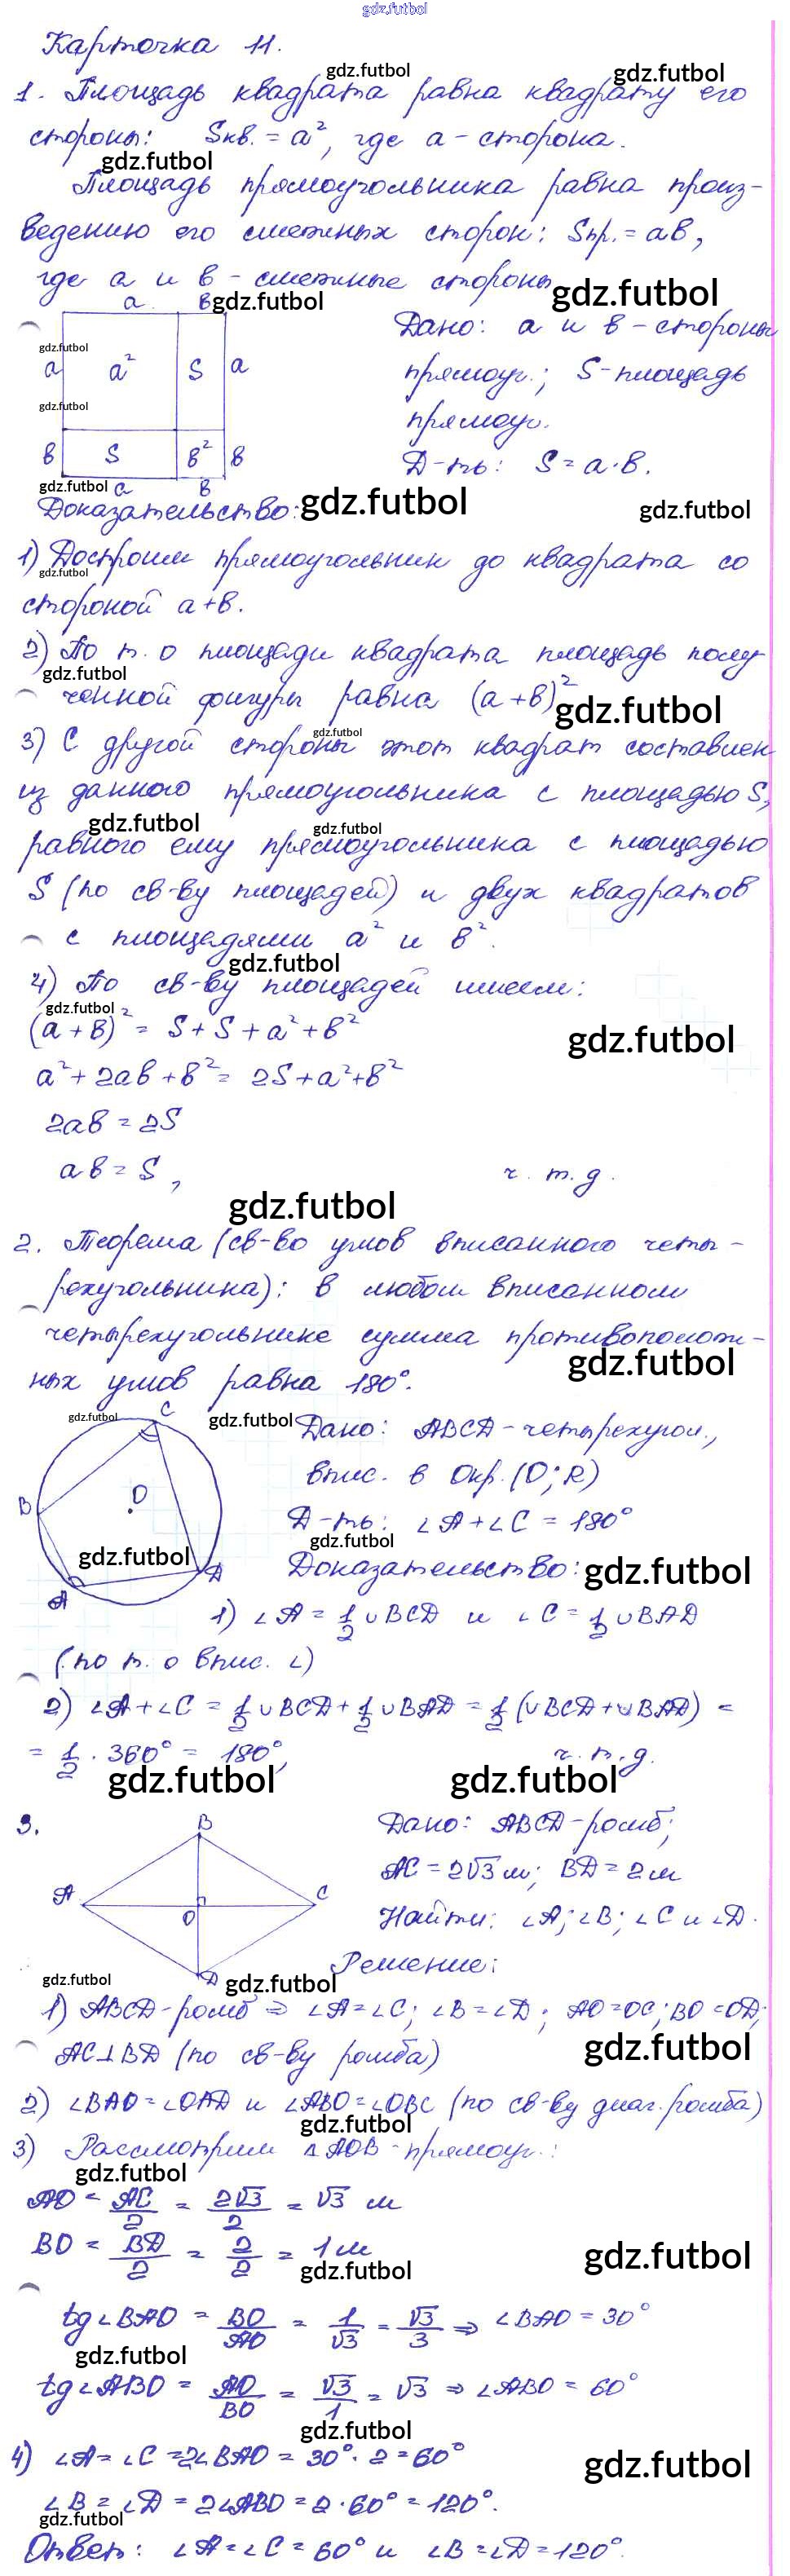 gdz.futbol
Карточка 11.
gdz.futbol gdz.futbol
1. Площадь квадрата равна квадрату его
стороны: Sкв. = a², где a – сторона.
gdz.futbol
Площадь прямоугольника равна произ-
ведению его смежных сторон: Sпр. = ab,
где a и b – смежные стороны
gdz.futbol gdz.futbol
a b
gdz.futbol
a a² S a
gdz.futbol
b S b² b
gdz.futbol a b
Дано: a и b – стороны
прямоуг.; S – площадь
прямоуг.
Д-ть: S = a·b.
Доказательство:
gdz.futbol gdz.futbol
1) Достроим прямоугольник до квадрата со
gdz.futbol
стороной a+b.
2) По т. о площади квадрата площадь полу
gdz.futbol
ченной фигуры равна (a+b)²
gdz.futbol
3) С другой стороны этот квадрат составлен
gdz.futbol
из данного прямоугольника с площадью S,
gdz.futbol gdz.futbol
равного ему прямоугольника с площадью
S (по св-ву площадей) и двух квадратов
с площадями a² и b².
gdz.futbol
4) По св-ву площадей имеем:
gdz.futbol
(a+b)² = S+S+a²+b²
gdz.futbol
a²+2ab+b² = 2S+a²+b²
2ab = 2S
ab = S, ч.т.д.
gdz.futbol
2. Теорема (св-во углов вписанного четы-
рехугольника): в любом вписанном
четырехугольнике сумма противополож-
gdz.futbol
ных углов равна 180°.
gdz.futbol gdz.futbol
C
B O
gdz.futbol
A D
Дано: ABCD – четырехугол.,
впис. в Окр.(O;R)
Д-ть: ∠A+∠C = 180°
gdz.futbol
Доказательство:
gdz.futbol
1) ∠A = 1/2 ∪BCD и ∠C = 1/2 ∪BAD
(по т. о впис. ∠)
2) ∠A+∠C = 1/2 ∪BCD + 1/2 ∪BAD = 1/2 (∪BCD+∪BAD) =
= 1/2 · 360° = 180°, ч.т.д.
gdz.futbol gdz.futbol
3.
B
A C
O
D
Дано: ABCD – ромб;
AC = 2√3 м; BD = 2 м
Найти: ∠A; ∠B; ∠C и ∠D.
Решение:
gdz.futbol gdz.futbol
1) ABCD – ромб ⇒ ∠A=∠C; ∠B=∠D; AO=OC; BO=OD;
AC⊥BD (по св-ву ромба)
gdz.futbol
2) ∠BAO=∠OAD и ∠ABO=∠OBC (по св-ву диаг. ромба)
gdz.futbol
3) Рассмотрим △AOB – прямоуг.:
gdz.futbol
AO = AC/2 = 2√3/2 = √3 м
BO = BD/2 = 2/2 = 1 м
gdz.futbol gdz.futbol
tg∠BAO = BO/AO = 1/√3 = √3/3 ⇒ ∠BAO = 30°
gdz.futbol
tg∠ABO = AO/BO = √3/1 = √3 ⇒ ∠ABO = 60°
gdz.futbol
4) ∠A = ∠C = 2∠BAO = 30°·2 = 60°
gdz.futbol
∠B = ∠D = 2∠ABO = 2·60° = 120°.
gdz.futbol
Ответ: ∠A=∠C=60° и ∠B=∠D=120°.